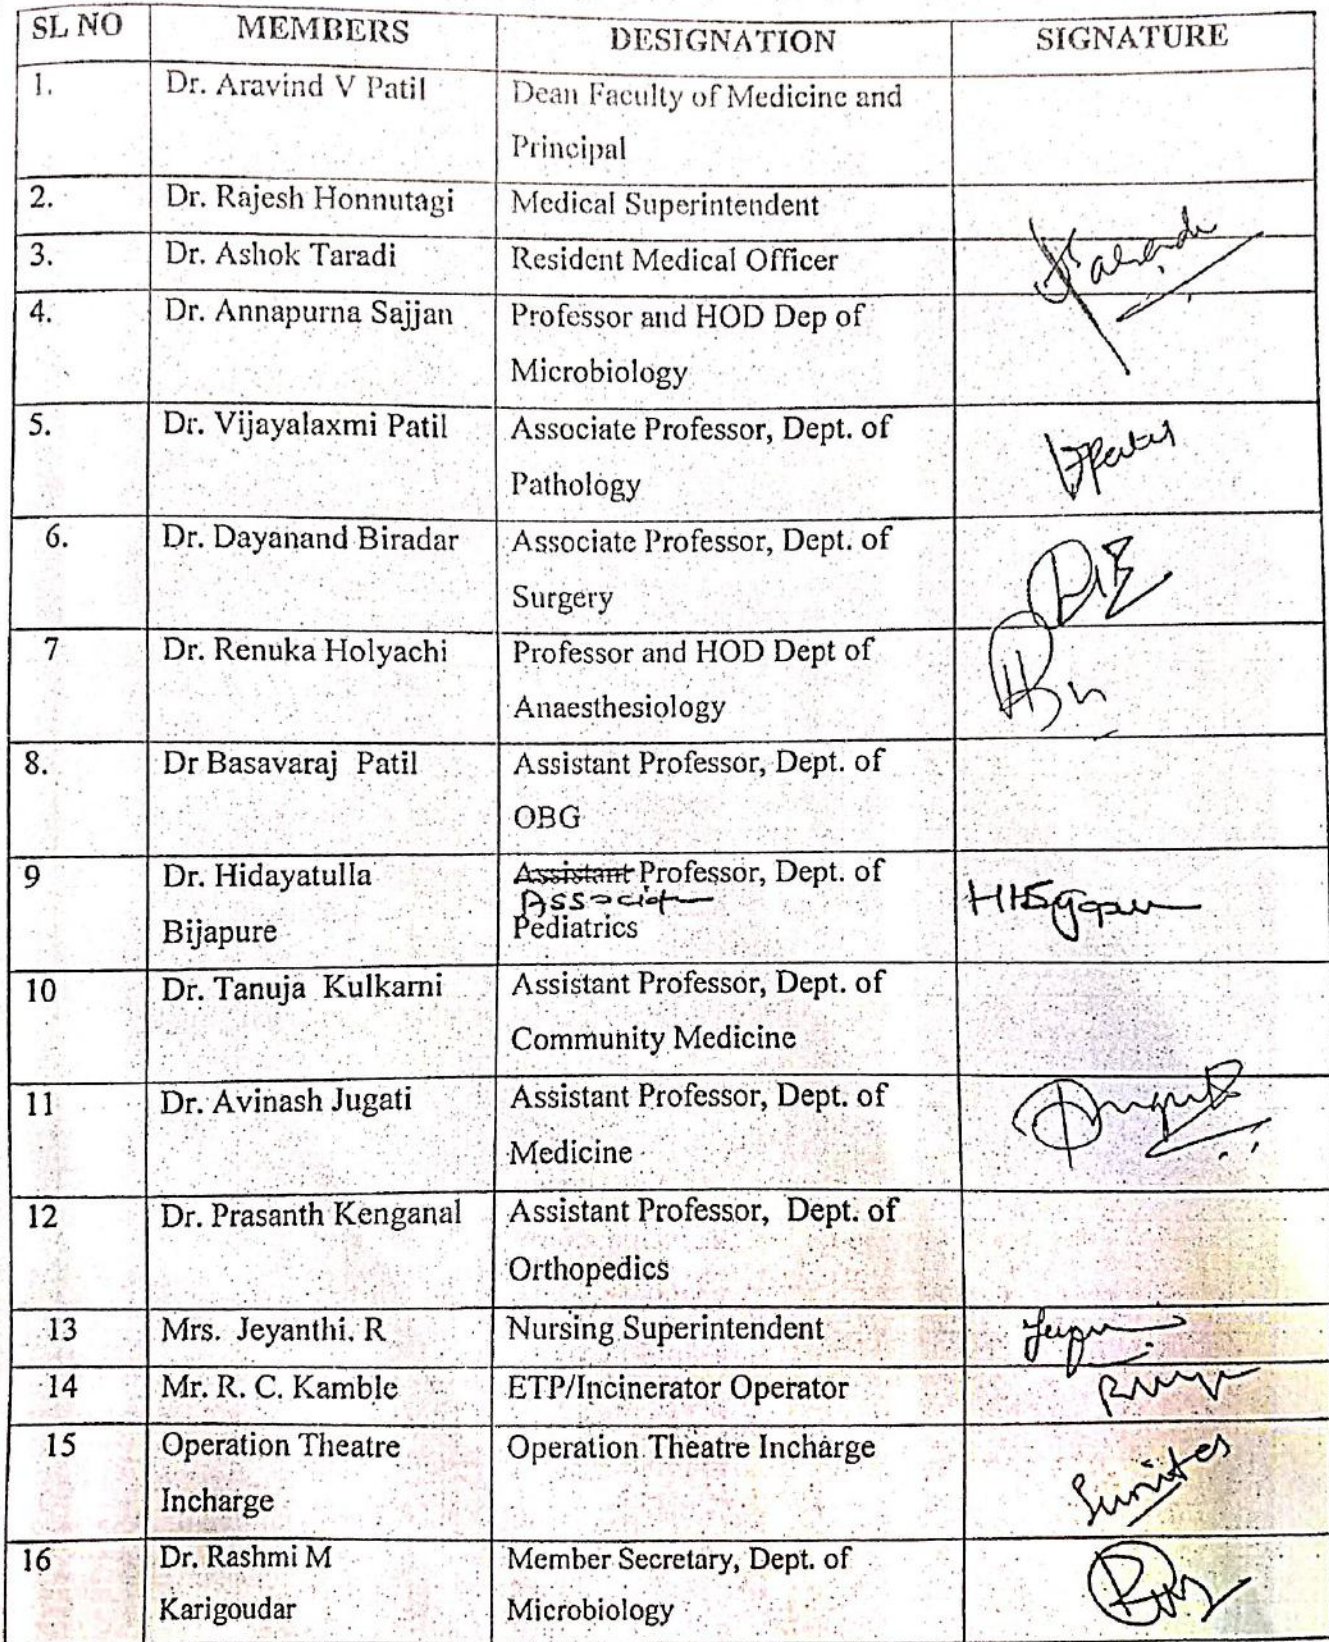 SL NO MEMBERS DESIGNATION SIGNATURE
1. Dr. Aravind V Patil Dean Faculty of Medicine and
Principal
2. Dr. Rajesh Honnutagi Medical Superintendent
3. Dr. Ashok Taradi Resident Medical Officer
4. Dr. Annapurna Sajjan Professor and HOD Dep of
Microbiology
5. Dr. Vijayalaxmi Patil Associate Professor, Dept. of
Pathology
6. Dr. Dayanand Biradar Associate Professor, Dept. of
Surgery
7 Dr. Renuka Holyachi Professor and HOD Dept of
Anaesthesiology
8. Dr Basavaraj Patil Assistant Professor, Dept. of
OBG
9 Dr. Hidayatulla Assistant Professor, Dept. of
Bijapure Pediatrics
10 Dr. Tanuja Kulkarni Assistant Professor, Dept. of
Community Medicine
11 Dr. Avinash Jugati Assistant Professor, Dept. of
Medicine
12 Dr. Prasanth Kenganal Assistant Professor, Dept. of
Orthopedics
13 Mrs. Jeyanthi. R Nursing Superintendent
14 Mr. R. C. Kamble ETP/Incinerator Operator
15 Operation Theatre Operation Theatre Incharge
Incharge
16 Dr. Rashmi M Member Secretary, Dept. of
Karigoudar Microbiology